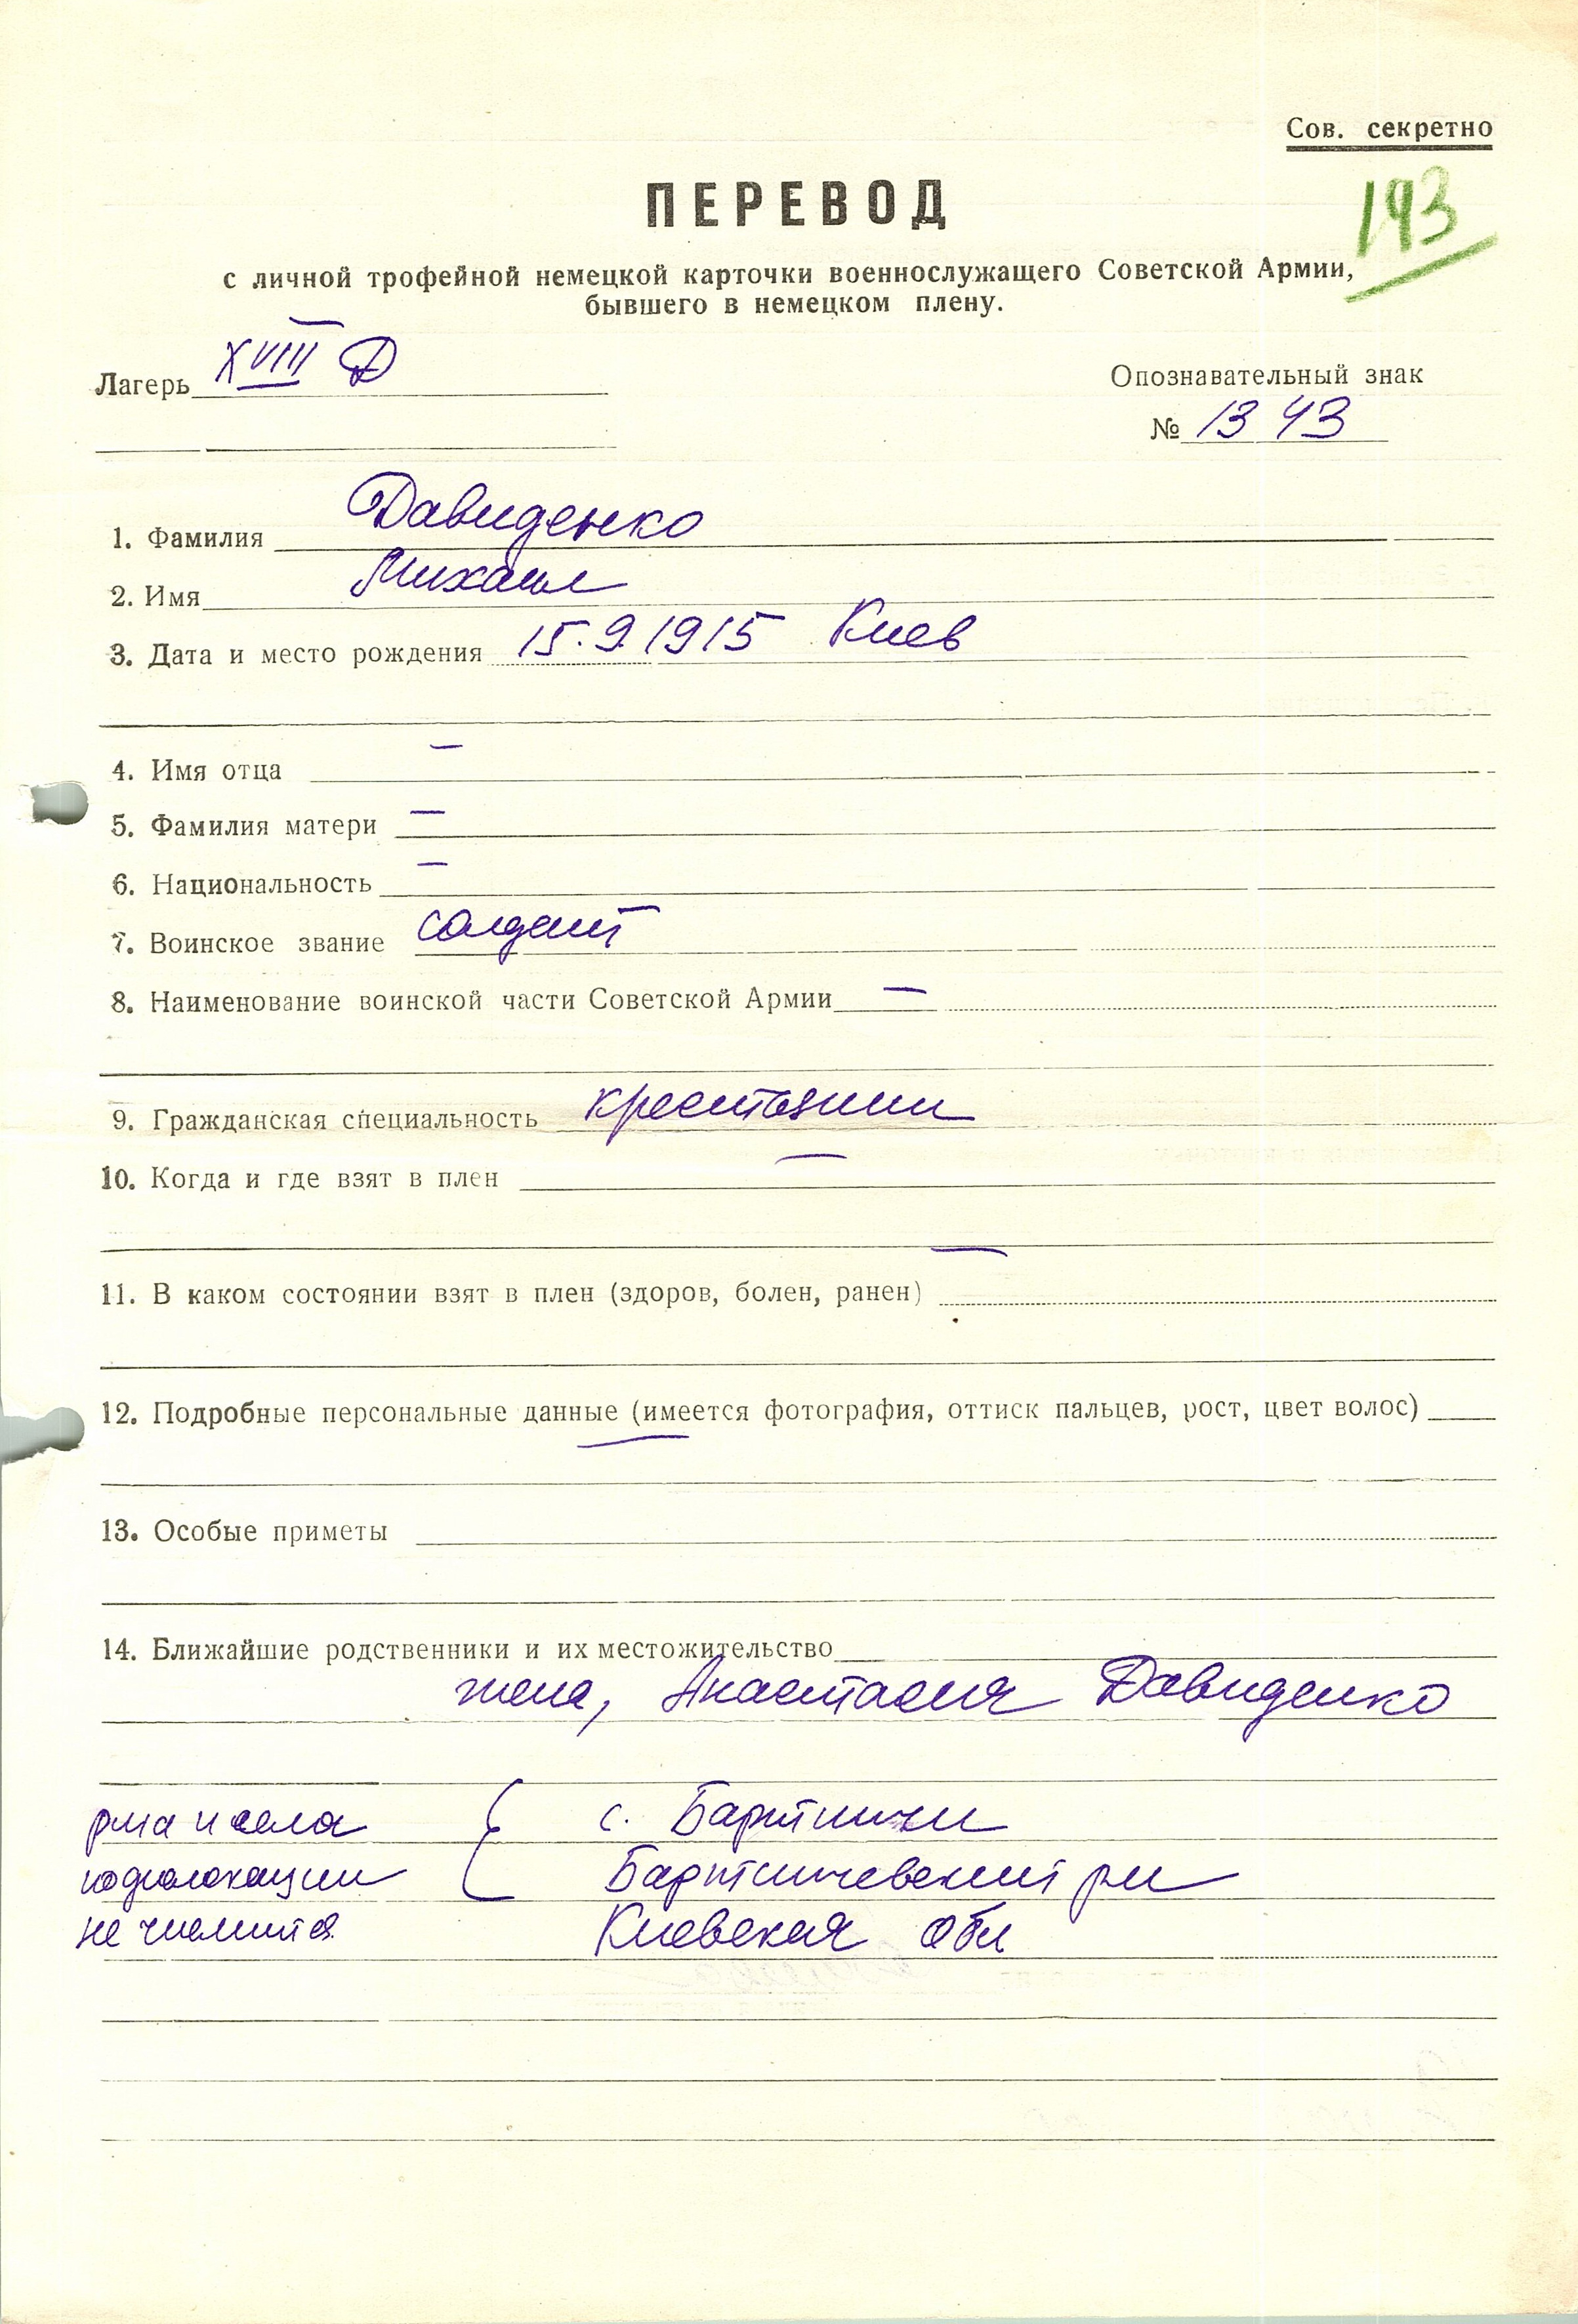 Сов. секретно
193
ПЕРЕВОД
с личной трофейной немецкой карточки военнослужащего Советской Армии,
бывшего в немецком плену.
Лагерь XVIII Д
Опознавательный знак
№ 1343
1. Фамилия Давиденко
2. Имя Михаил
3. Дата и место рождения 15.9.1915 Киев
4. Имя отца —
5. Фамилия матери —
6. Национальность —
7. Воинское звание солдат
8. Наименование воинской части Советской Армии —
9. Гражданская специальность крестьянин
10. Когда и где взят в плен —
11. В каком состоянии взят в плен (здоров, болен, ранен) —
12. Подробные персональные данные (имеется фотография, оттиск пальцев, рост, цвет волос)
—
13. Особые приметы
14. Ближайшие родственники и их местожительство
жена, Анастасия Давиденко
р-на и села с. Бартничи
по дислокации Бартничевский р-н
не числится Киевская обл